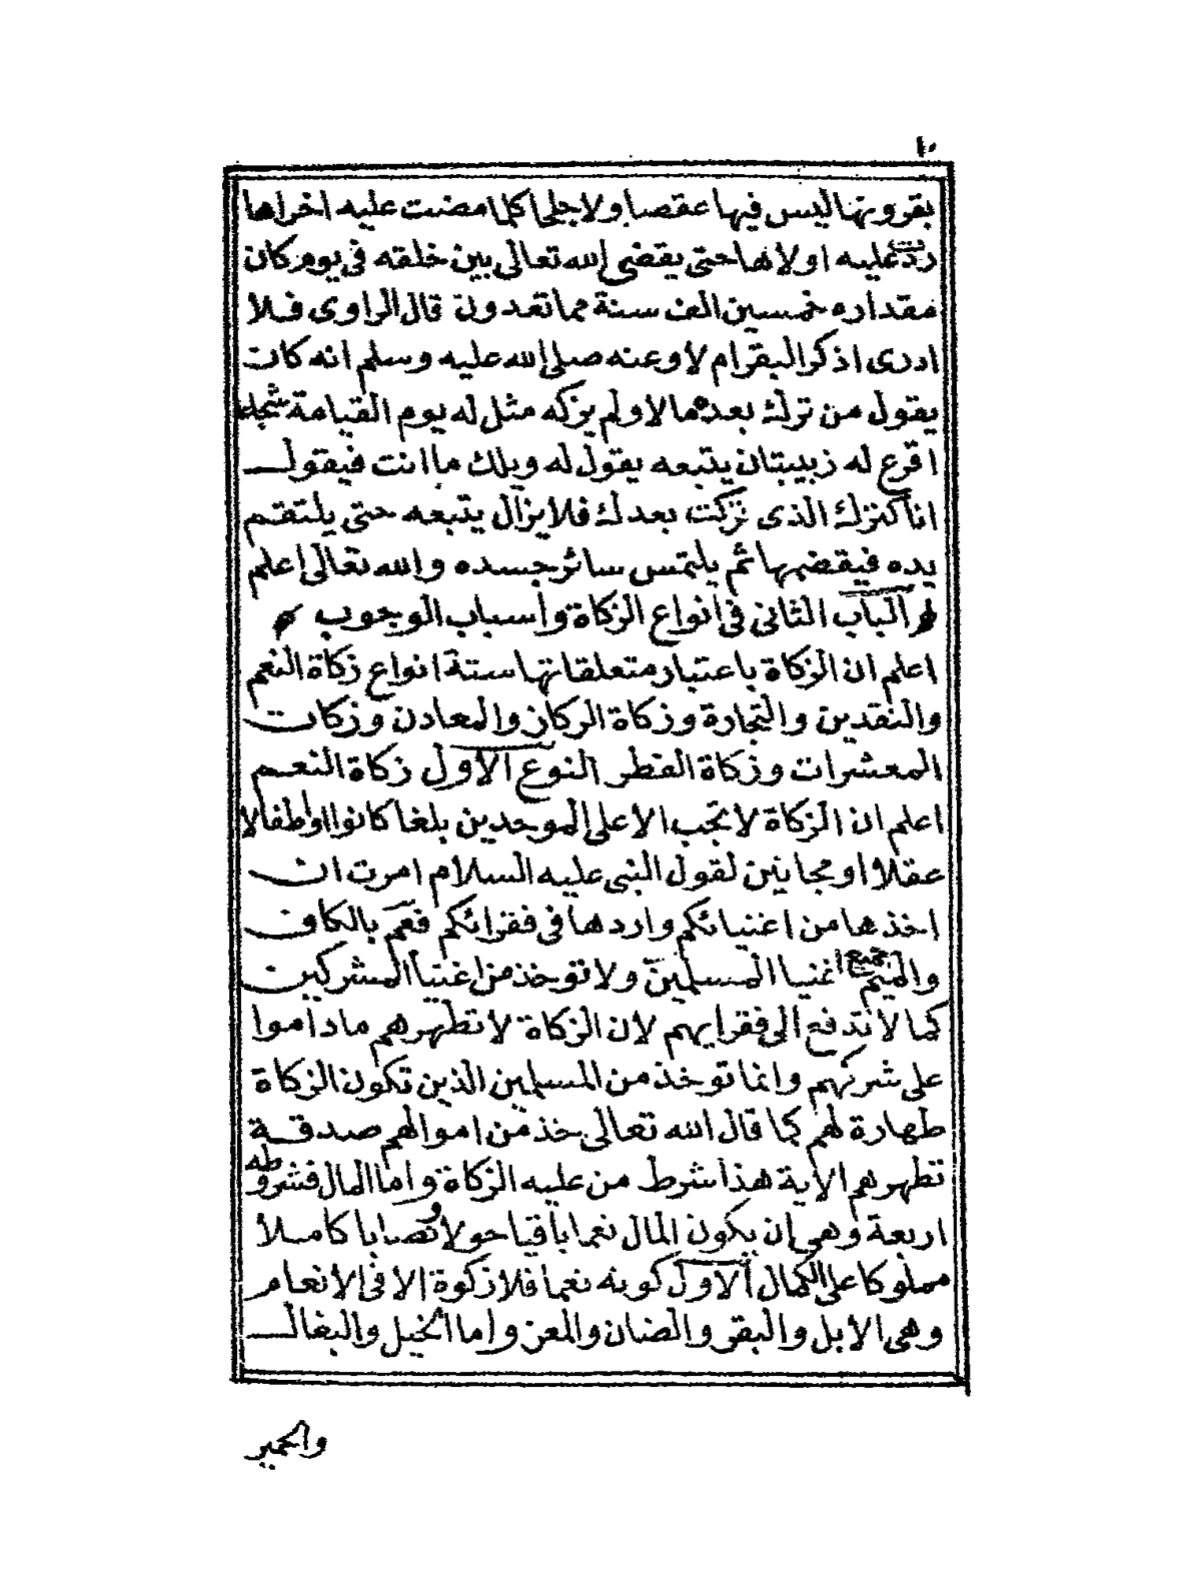 ١٠
بقرونها ليس فيها عقصا ولا جلحا كلما مضت عليه اخراها
ردت عليه اولاها حتى يقضى الله تعالى بين خلقه فى يوم كان
مقداره خمسين الف سنة مما تعدون قال الراوى فلا
ادرى اذكر البقر ام لا وعنه صلى الله عليه وسلم انه كان
يقول من ترك بعده مالا ولم يزكه مثل له يوم القيامة شجاعا
اقرع له زبيبتان يتبعه يقول له ويلك ما انت فيقول
انا كنزك الذى تركت بعدك فلا يزال يتبعه حتى يلتقم
يده فيقضمها ثم يلتمس سائر جسده والله تعالى اعلم
الباب الثانى فى انواع الزكاة واسباب الوجوب
اعلم ان الزكاة باعتبار متعلقاتها ستة انواع زكاة النعم
والنقدين والتجارة وزكاة الركاز والمعادن وزكات
المعشرات وزكاة الفطر النوع الاول زكاة النعم
اعلم ان الزكاة لا تجب الا على الموحدين بلغا كانوا او طفالا
عقلا او مجانين لقول النبى عليه السلام امرت ان
اخذها من اغنيائكم واردها فى فقرائكم فعم بالكاف
والميم جميع اغنيا المسلمين ولا توخذ من اغنيا المشركين
كما لا تدفع الى فقرايهم لان الزكاة لا تطهرهم ما داموا
على شركهم وانما توخذ من المسلمين الذين تكون الزكاة
طهارة لهم كما قال الله تعالى خذ من اموالهم صدقة
تطهرهم الاية هذا شرط من عليه الزكاة واما المال فشروطه
اربعة وهى ان يكون المال نعما باقيا حولا ونصابا كاملا
مملوكا على الكمال الاول كونه نعما فلا زكوة الا فى الانعام
وهى الابل والبقر والضان والمعز واما الخيل والبغال
والحمير